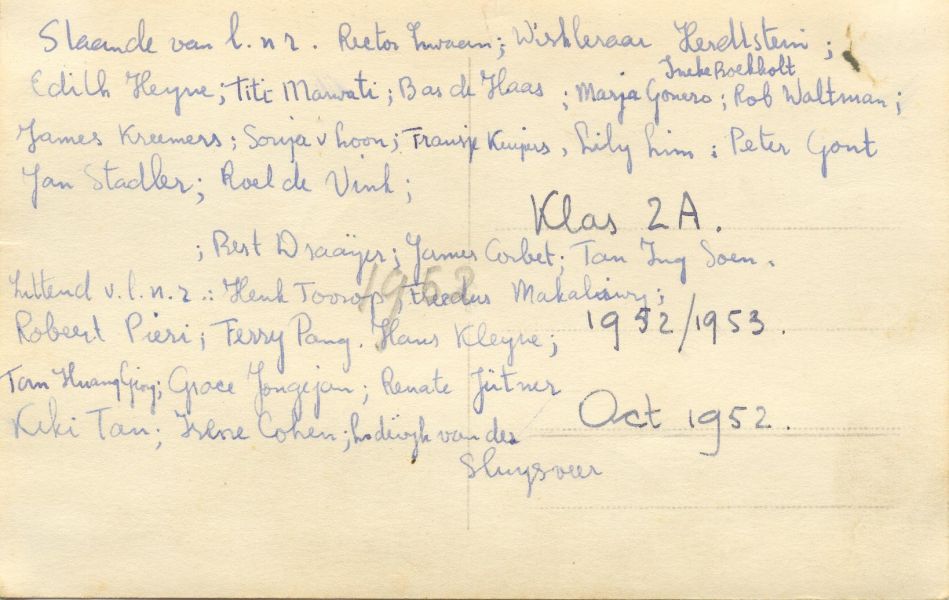 Staande van l. n r. Rector Zwaan; Wiskleraar Herdtstein;
Ineke Roekholt
Edith Heyne; Titi Marwati; Bas de Haas; Marja Gonero; Rob Waltman;
James Kreemers; Sonja v Loon; Fransje Kuijers, Lily Lim; Peter Gont
Jan Stadler; Roel de Vink;
Klas 2A.
; Bert Draaijer; James Corbet; Tan Ing Soen.
Zittend v. l. n. r.: Henk Toorop; Freedus
1952
Robert Pieri; Ferry Pang. Hans Kleyne;
1952/1953.
Tan Huang Giog; Grace Jongejan; Renate Jütner
Kiki Tan; Irene Cohen; Lodewijk van der
Oct 1952.
Sluysveer